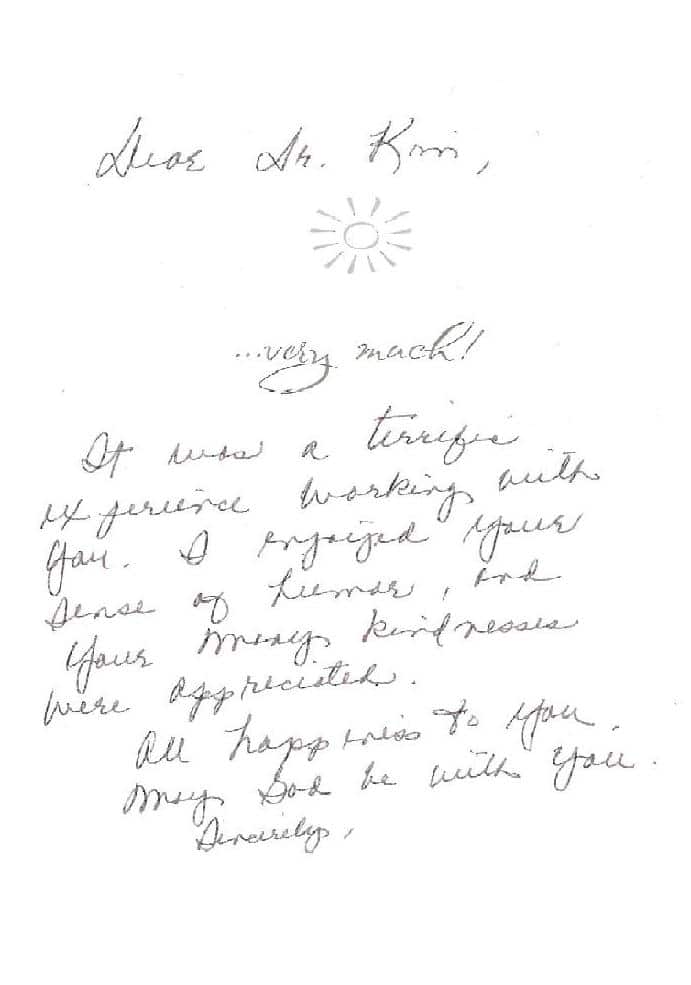 Dear Dr. Kim,
...very much!
It was a terrific
experience working with
you. I enjoyed your
sense of humor, and
your many kindnesses
were appreciated.
All happiness to you.
May God be with you.
Sincerely,